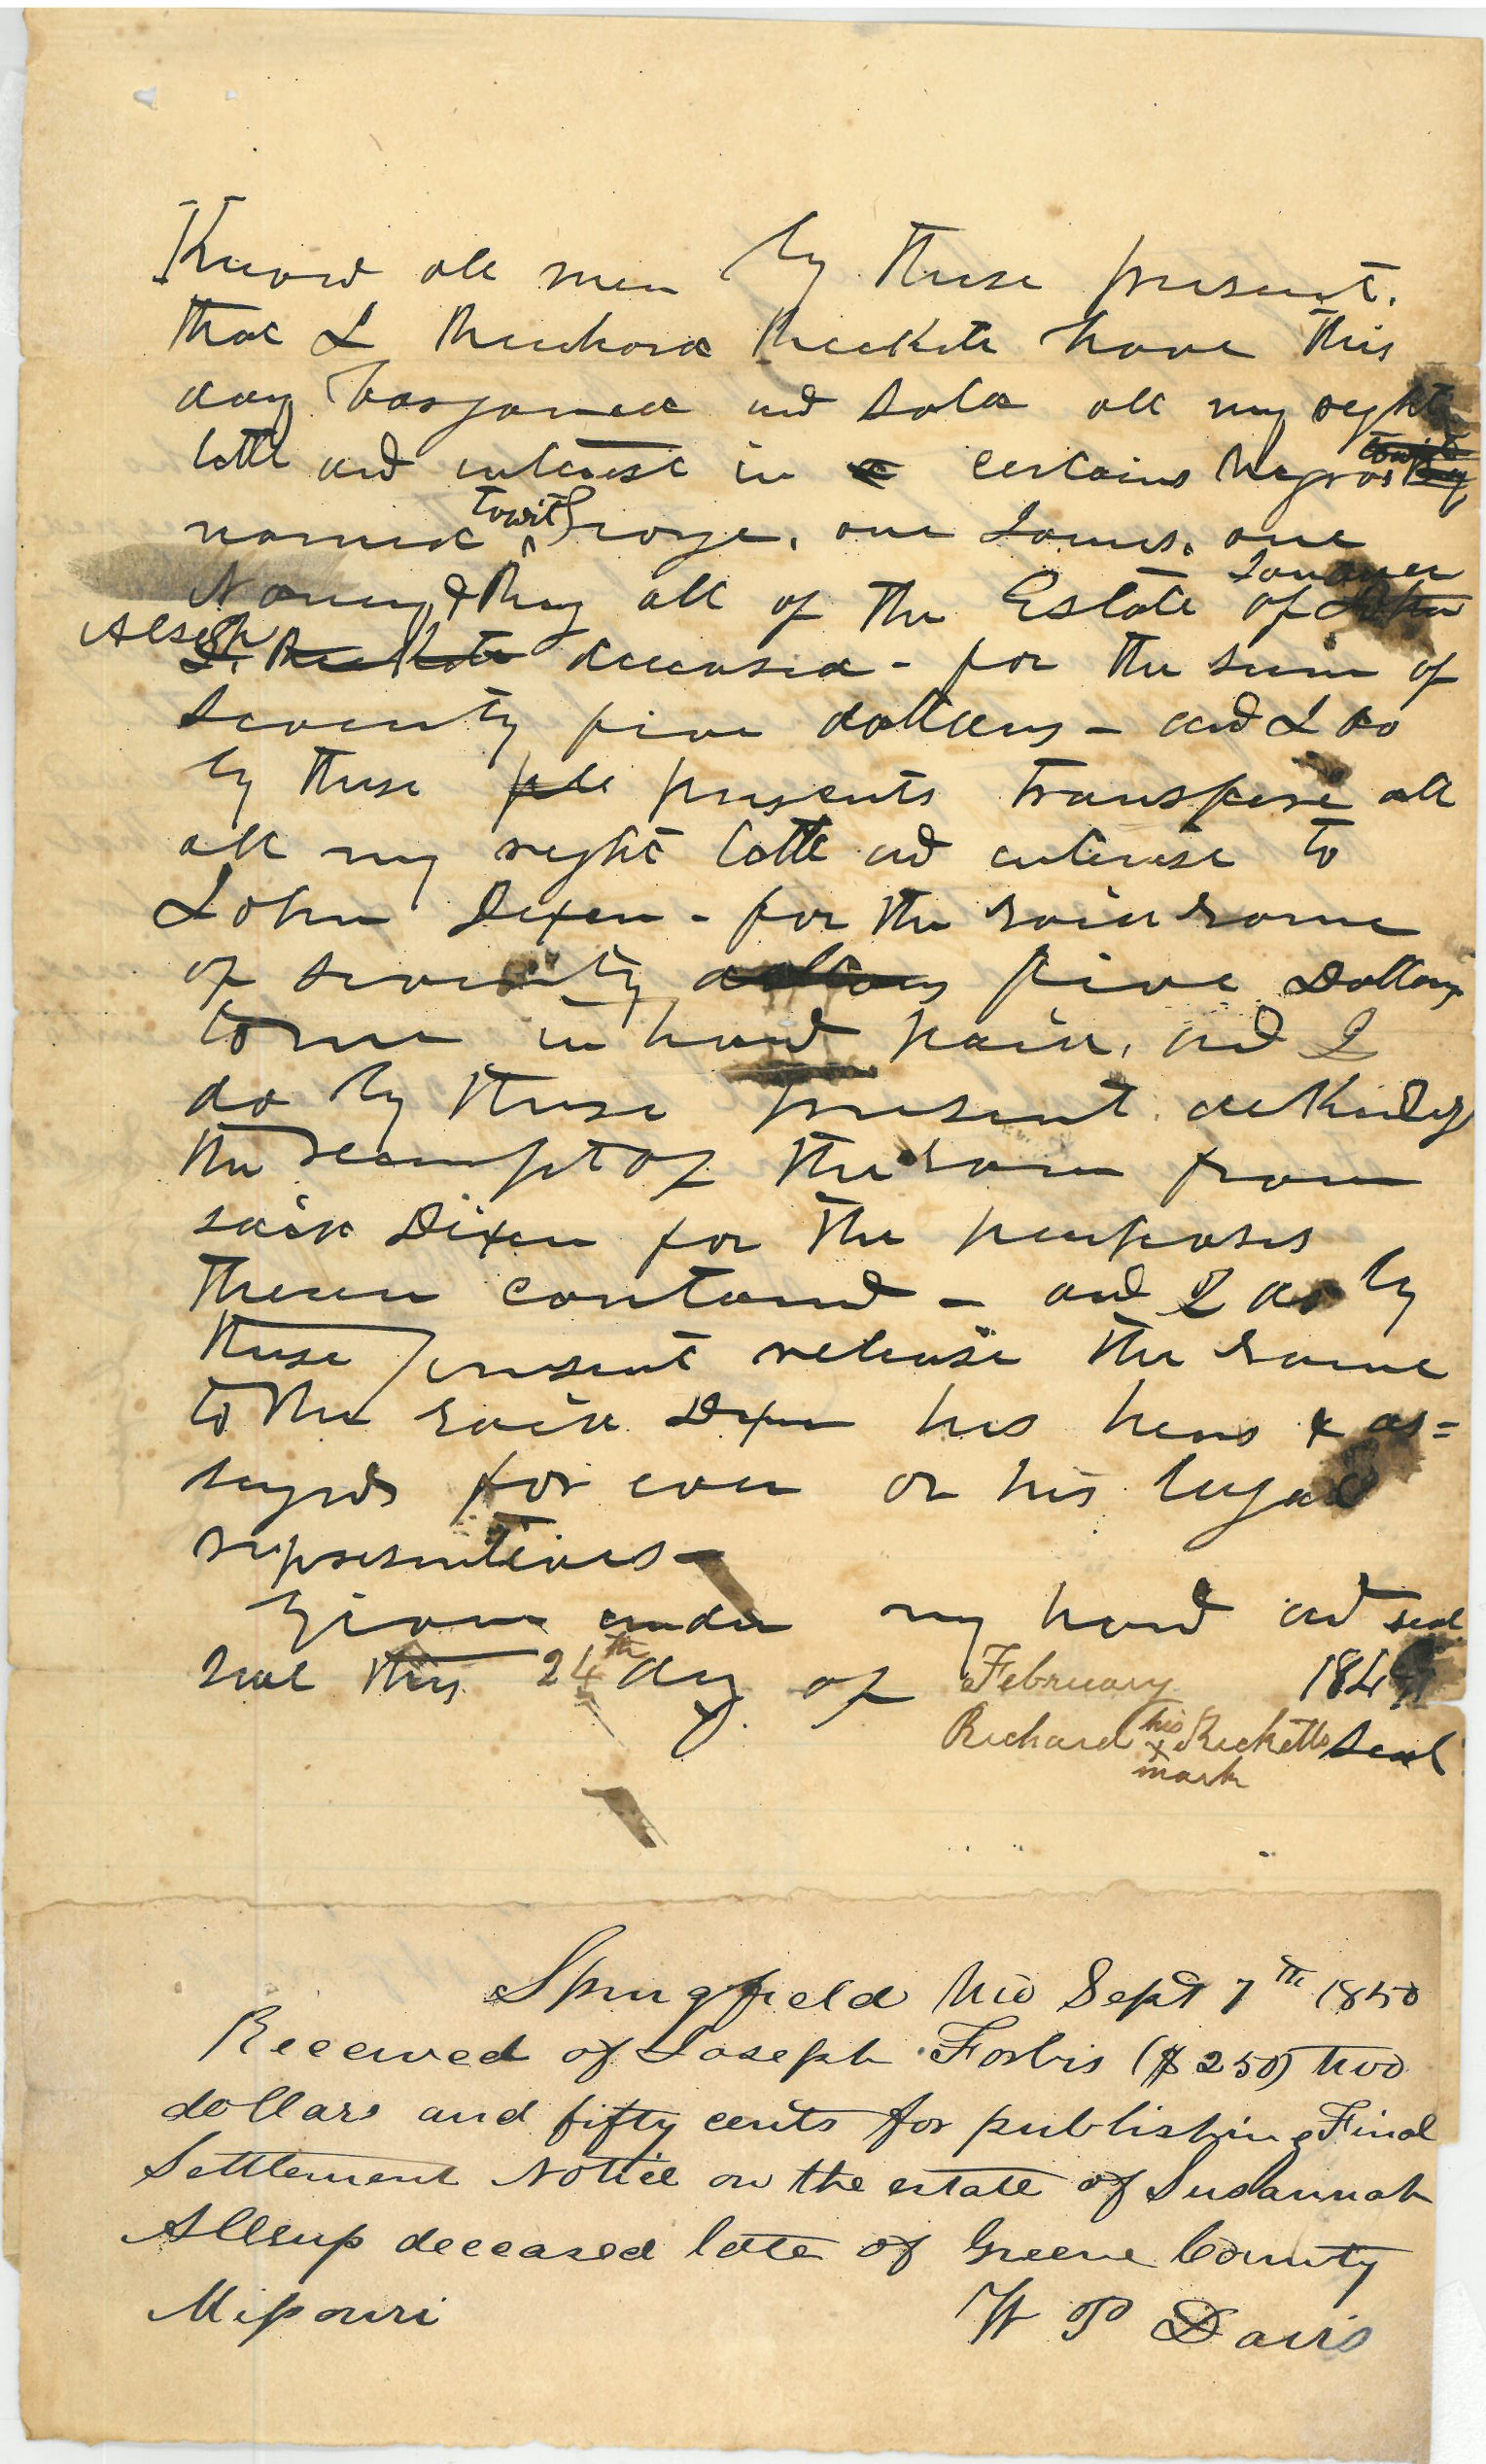 Know all men by these present.
that I Richard Ricketts have this
day bargained and sold all my right
title and interest in a certains Negros
named towit George, one James, one
Nancy & all of the Estate of
Alsoph deceased - for the sum of
seventy five dollars - and I do
by these presents transfere all
all my right title and interest to
John Dixen - for the said some
of seventy dollars five Dollars
to me in hand paid, and I
do by these present acknledg
the recempt of the some from
said Dixen for the purposes
therein contand - and I do by
these present release the same
to the said Dixen his heirs & as=
signs for ever or his legal
representatives -
Given under my hand and seal
seal this 24th day of February 184
Richard his x mark Ricketts Seal
Springfield Mo Sept 7th 1850
Received of Joseph Forbis ($2 50) two
dollars and fifty cents for publishing Final
Settlement Notice on the estate of Susannah
Allsup deceased late of Greene County
Missouri W P Davis